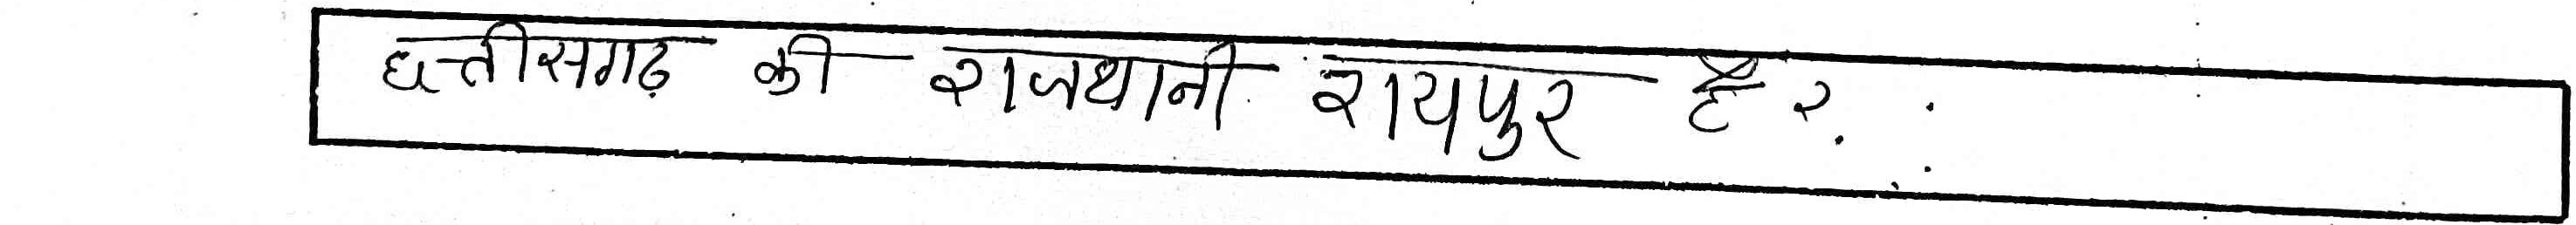 छत्तीसगढ़ की राजधानी रायपुर है ?